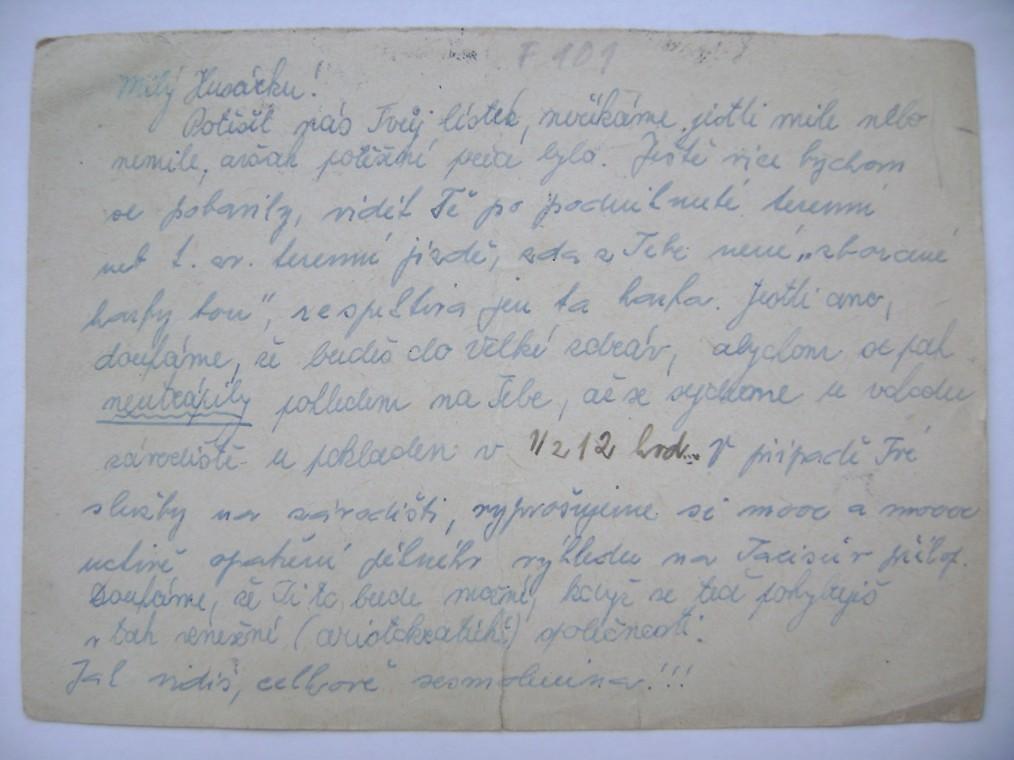 F 101
Milý Husáčku!
Potěšil nás Tvůj lístek, neříkáme, jestli mile nebo
nemile, avšak potěšení před bylo. Ještě více bychom
se pobavily, vidět Tě po podniknuté terenní
neb t. zv. terenní jízdě, zda z Tebe není „zborcené
harfy tón", respektive jen ta harfa. Jestli ano,
doufáme, že budeš do Velké zdráv, abychom se pak
neutrápily pohledem na Tebe, až se sejdeme u vchodu
závodiště u pokladen v 1/2 12 hod. V případě Tvé
služby na závodišti, vyprošujeme si mooc a mooc
uctivě opatření pěkného výhledu na Taxisův příkop.
Doufáme, že Ti to bude možné, když se teď pohybuješ
v tak vznešené (aristokratické) společnosti.
Jak vidíš, celkově sesmolenina!!!